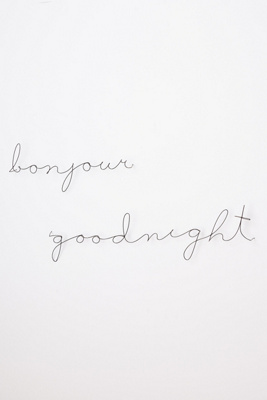 bonjour
goodnight